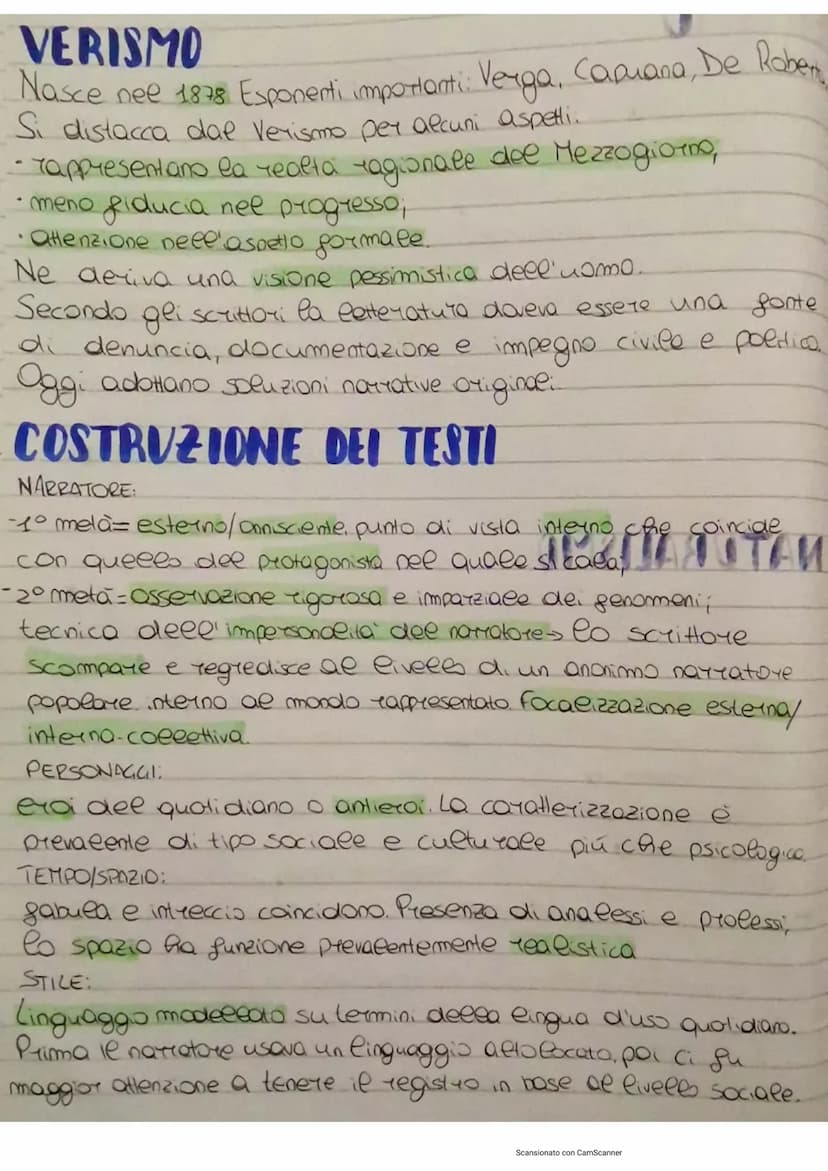 VERISMO
Nasce nel 1878 Esponenti importanti: Verga, Capuana, De Robert
Si distacca dal Verismo per alcuni aspetti.
· rappresentano la realtà ragionale del Mezzogiorno,
· meno fiducia nel progresso;
· attenzione nell'aspetto formale.
Ne deriva una visione pessimistica dell'uomo.
Secondo gli scrittori la letteratura doveva essere una fonte
di denuncia, documentazione e impegno civile e politico.
Oggi adottano soluzioni narrative originali.
COSTRUZIONE DEI TESTI
NARRATORE:
-1° metà= esterno/onnisciente, punto di vista interno che coincide
con quello del protagonista nel quale si cala;
-2° metà= osservazione rigorosa e imparziale dei fenomeni;
tecnica dell'impersonalità del narratore→ lo scrittore
scompare e regredisce al livello di un anonimo narratore
popolare interno al mondo rappresentato. Focalizzazione esterna/
interna-collettiva.
PERSONAGGI:
eroi del quotidiano o antieroi. La caratterizzazione è
prevalente di tipo sociale e culturale più che psicologica.
TEMPO/SPAZIO:
fabula e intreccio coincidono. Presenza di analessi e prolessi,
lo spazio ha funzione prevalentemente realistica
STILE:
Linguaggio modellato su termini della lingua d'uso quotidiano.
Prima il narratore usava un linguaggio altolocato, poi ci fu
maggior attenzione a tenere il registro in base al livello sociale.
Scansionato con CamScanner